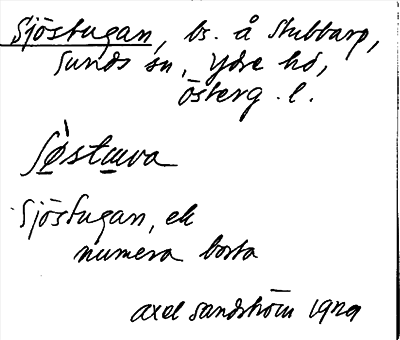 Sjöstugan, ls. å Stubbarp,
Sunds sn, Ydre hd,
Österg. l.
Sjöstugan, ek
numera borta
Axel Sandström 1929